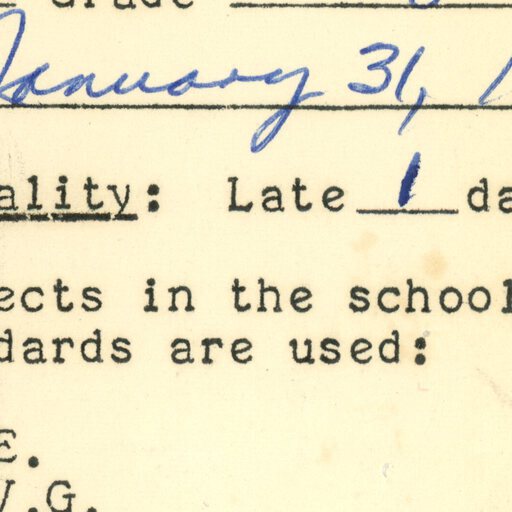 Grade
January 31, 1
ality: Late 1 da
ects in the school
dards are used:
E.
V.G.